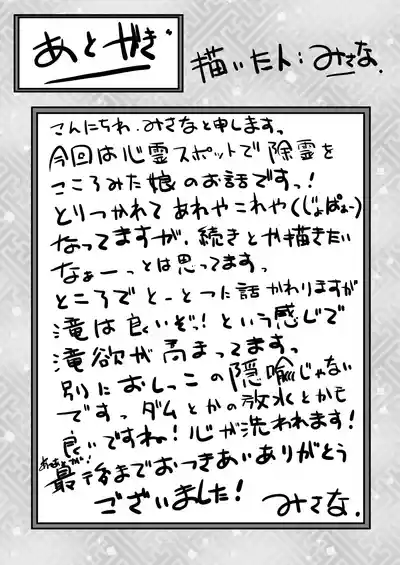 あとがき
描いた人:みさな.
こんにちわ.みさなと申します。
今回は心霊スポットで除霊を
こころみた娘のお話ですっ!
とりつかれてあれやこれや(じょばぁ〜)
なってますが、続きとか描きたい
なぁーっとは思ってます。
ところでとーとつに話かわりますが
滝は良いぞっ!という感じで
滝欲が高まってます。
別におしっこの隠喩じゃない
ですっ ダムとかの放水とかも
良いですね!心が洗われます!
最後までおつきあいありがとう
ございました!
みさな.